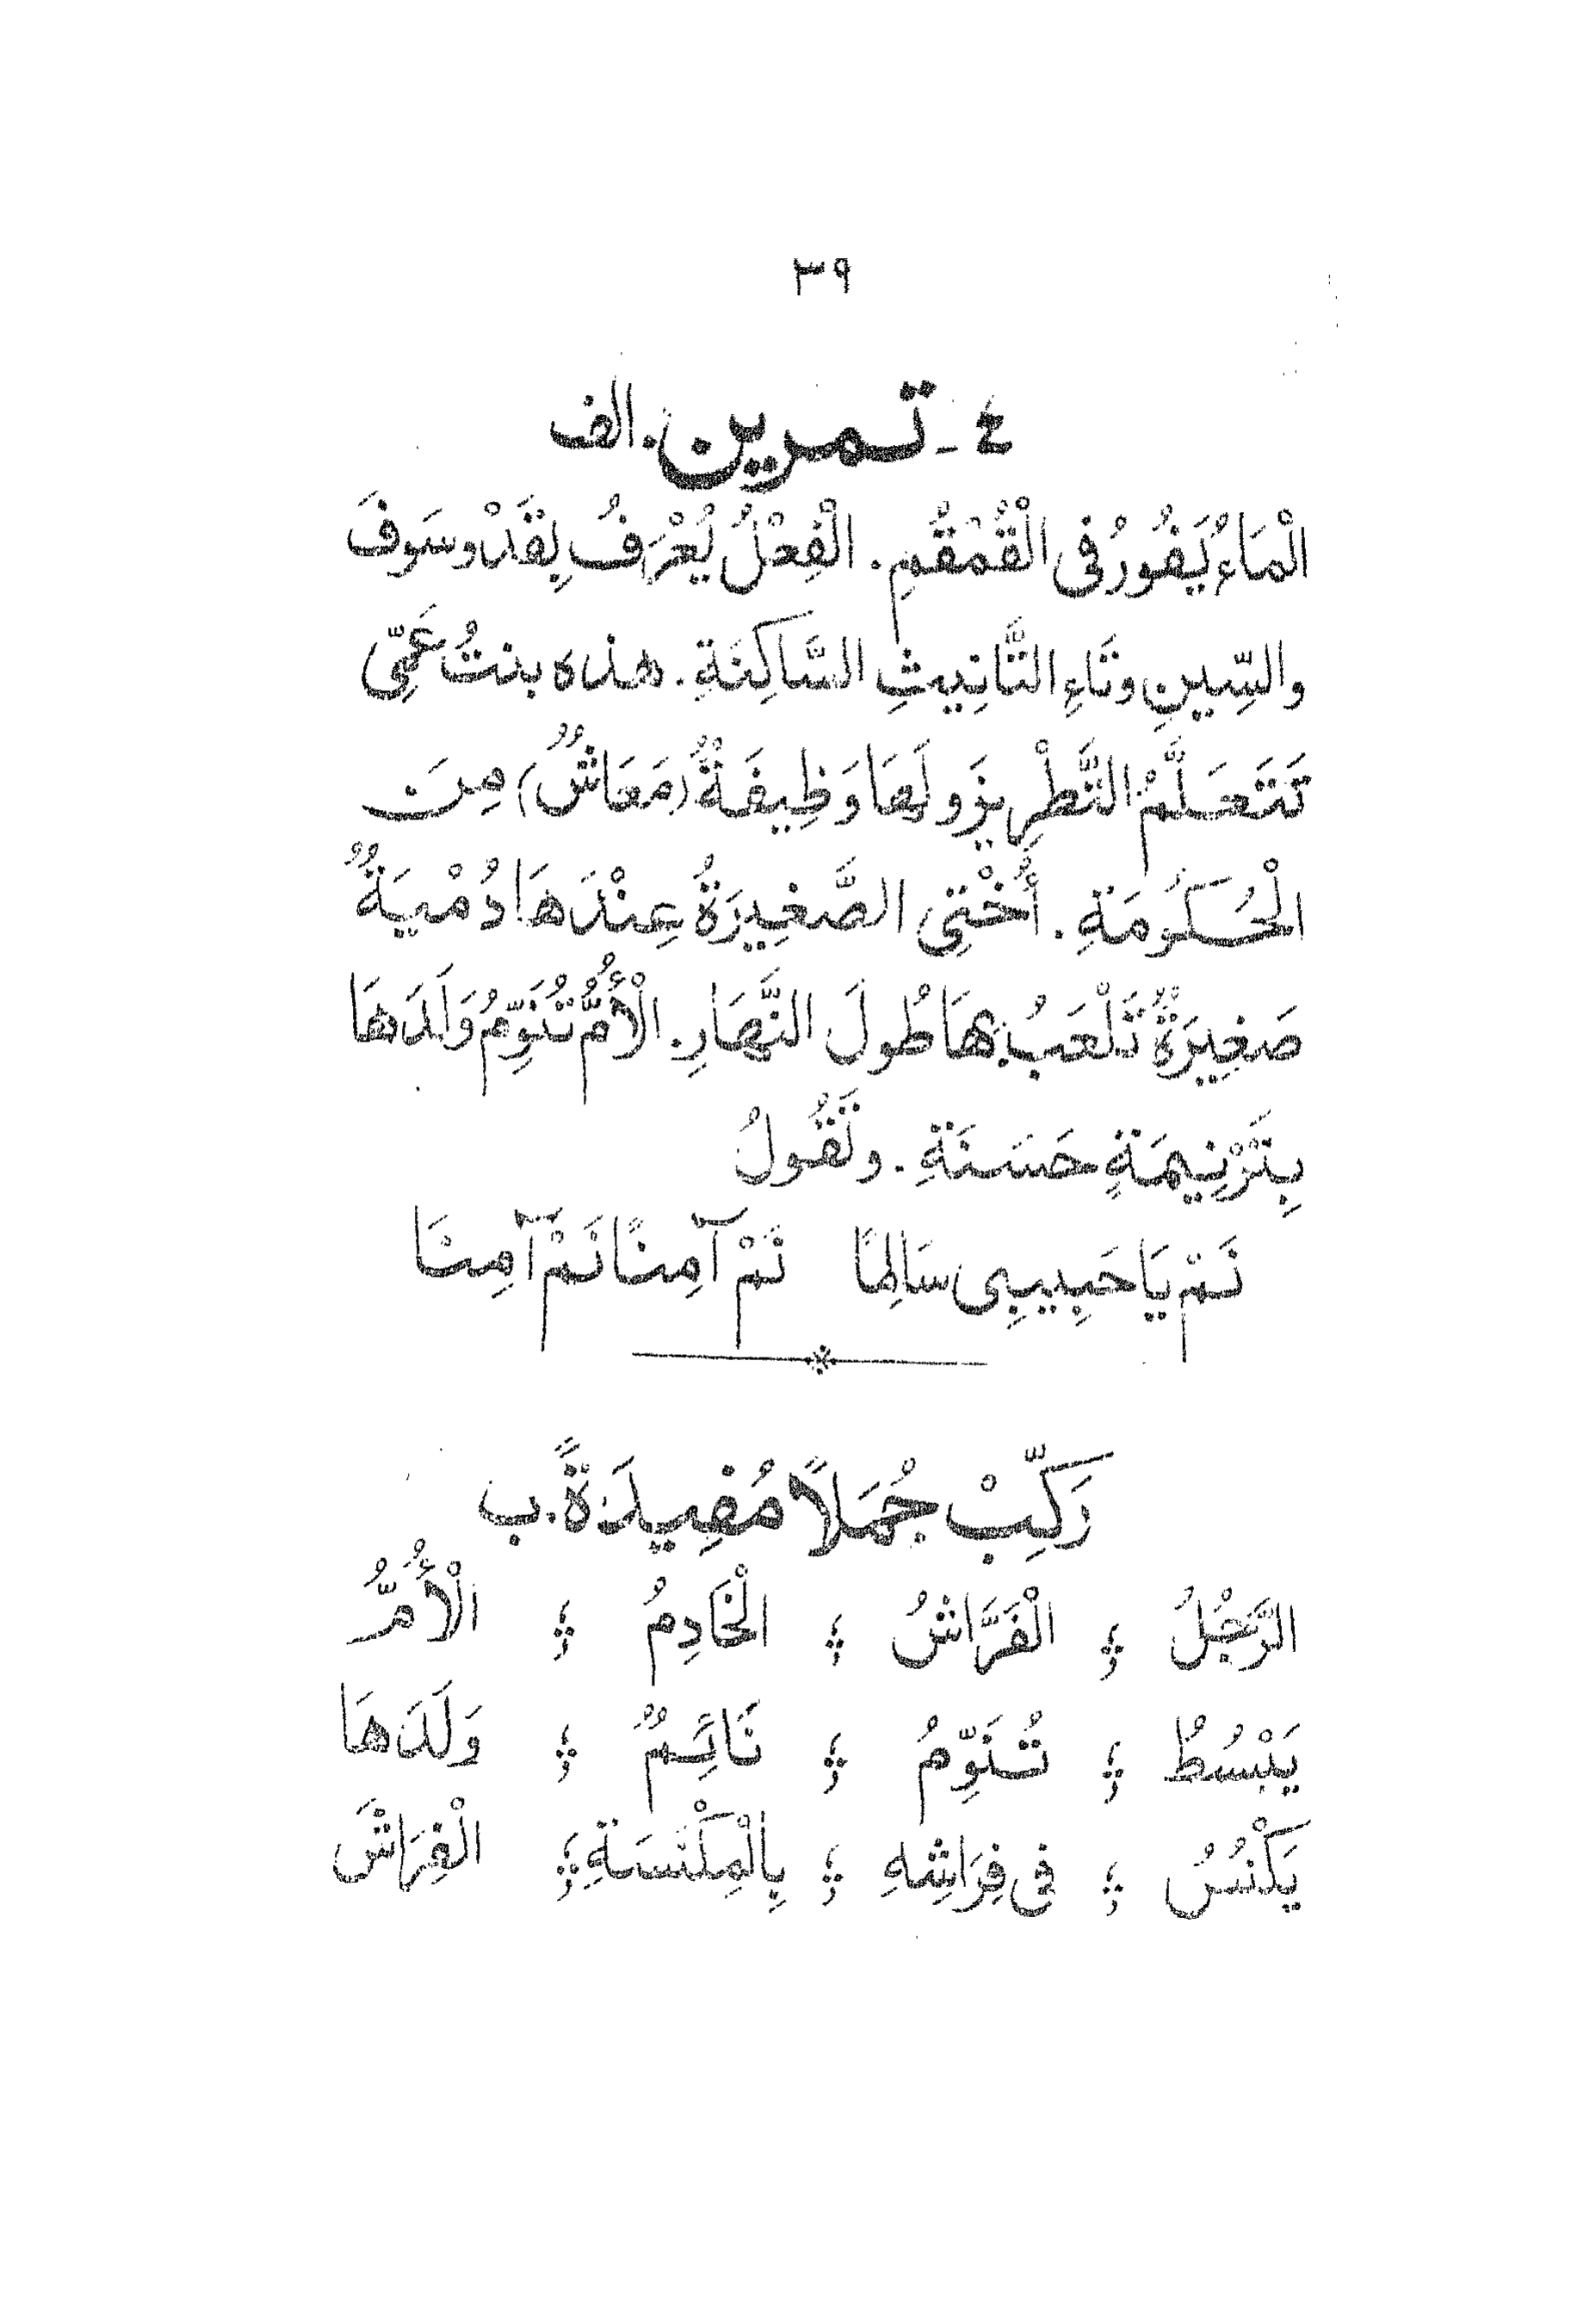 ٣٩
٤ - تمرين. الف
الْمَاءُ يَفُورُ فِى الْقُمْقُمِ. الْفِعْلُ يُعْرَفُ بِقَدْ وسَوفَ
والسِّينِ وتَاءِ التَّانِيثِ السَّاكِنَةِ. هذه بنتُ عَمِّى
تَتَعَلَّمُ التَّطْرِيزَ ولَهَا وَظِيفَةٌ (مَعَاشٌ) مِنَ
الْحُكُومَةِ. أُخْتِى الصَّغِيرَةُ عِنْدَهَا دُمْيَةٌ
صَغِيرَةٌ تَلْعَبُ بِهَا طُولَ النَّهَارِ. الْأُمُّ تُنَوِّمُ وَلَدَهَا
بِتَرْنِيمَةٍ حَسَنَةِ. وتَقُولُ
نَمْ يَا حَبِيبِى سَالِمًا نَمْ آمِنًا نَمْ آمِنَا
رَكِّبْ جُمَلاً مُفِيدَةً. ب
الرَّجُلُ ؛ الْفَرَّاشُ ؛ الْخَادِمُ ؛ الْأُمُّ
يَبْسُطُ ؛ تُنَوِّمُ ؛ نَائِمٌ ؛ وَلَدَهَا
يَكْنُسُ ؛ فِى فِرَاشِهِ ؛ بِالْمِكْنَسَةِ ؛ الْفِرَاشَ